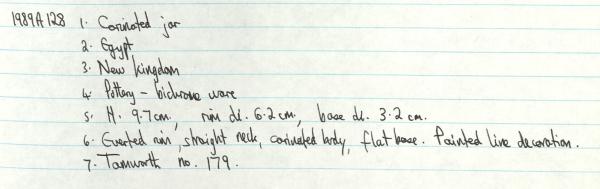 1989A128 1. Carinated jar
2. Egypt
3. New Kingdom
4. Pottery - bichrome ware
5. H. 9.7cm, rim di. 6.2cm, base di. 3.2 cm.
6. Everted rim, straight neck, carinated body, flat base. Painted line decoration.
7. Tamworth no. 179.